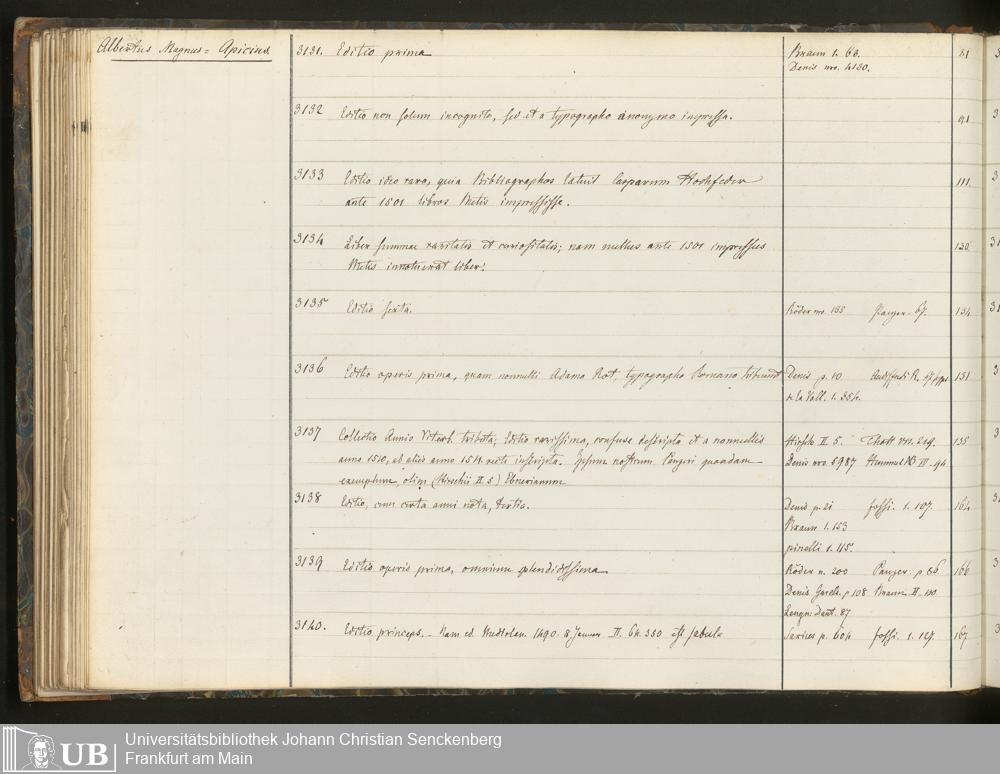 Albertus Magnus = Apicius
3131. Editio prima Braun 1. 63. 81
Denis nro. 4130.
3132 Editio non solum incognito, sed et a typographo anonymo impressa. 91
3133 Editio ideo rara, quia Bibliographos latuit Casparum Hochfeder 111.
ante 1501 libros Metis impressisse.
3134 Liber summae raritatis et curiositatis; nam nullus ante 1501 impressus 130
Metis innotuerat liber.
3135 Editio sexta. Röder nro. 155 Panzer. 67. 134
3136 Editio operis prima, quam nonnulli Adamo Rot, typographo Romano tribuunt Denis p. 10 Audiffredi R. 151
de la Vall. 1. 354.
3137 Collectio Annio Viterb. tributa; Editio rarissima, confuse descripta et a nonnullis Hirsch II 5. 135
anno 1510, ab aliis anno 1511 recte inscripta. Ipsum nostrum Panzeri quondam Denis nro. 5987 Hummel III. 94
exemplum, olim (Hirschii II. 5) Ebnerianum
3138 Editio, cum certa anni nota, tertia. Denis p. 21 fossi. 1. 107. 164
Braun 1. 153
pinelli 1. 115.
3139 Editio operis prima, omnium splendidissima Röder n. 200 Panzer. p 86 166
Denis Garel. p 108 Braun II.
Lengn. 87
3140. Editio princeps. Nam ed. Mediolan. 1490. 8 Januar II. 64. 330 est fabula Saxius p. 604 fossi. 1. 127. 167
UB
Universitätsbibliothek Johann Christian Senckenberg
Frankfurt am Main